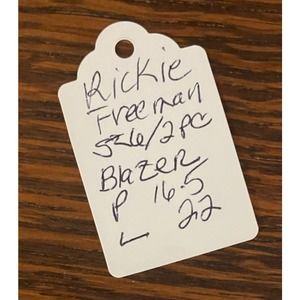 Rickie
Freeman
SZ6/2PC
Blazer
P 16.5
L 22